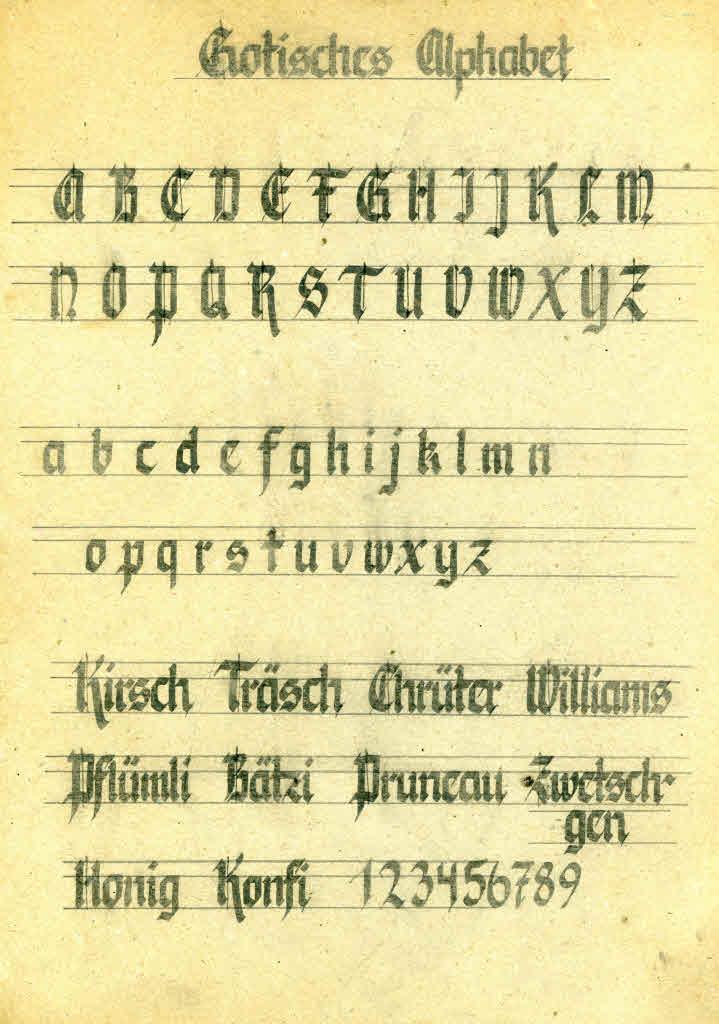 Gotisches Alphabet
A B C D E F G H I J K L M
N O P Q R S T U V W X Y Z
a b c d e f g h i j k l m n
o p q r s t u v w x y z
Kirsch Träsch Chrüter Williams
Pflümli Bätzi Pruneau Zwetsch-
gen
Honig Konfi 123456789